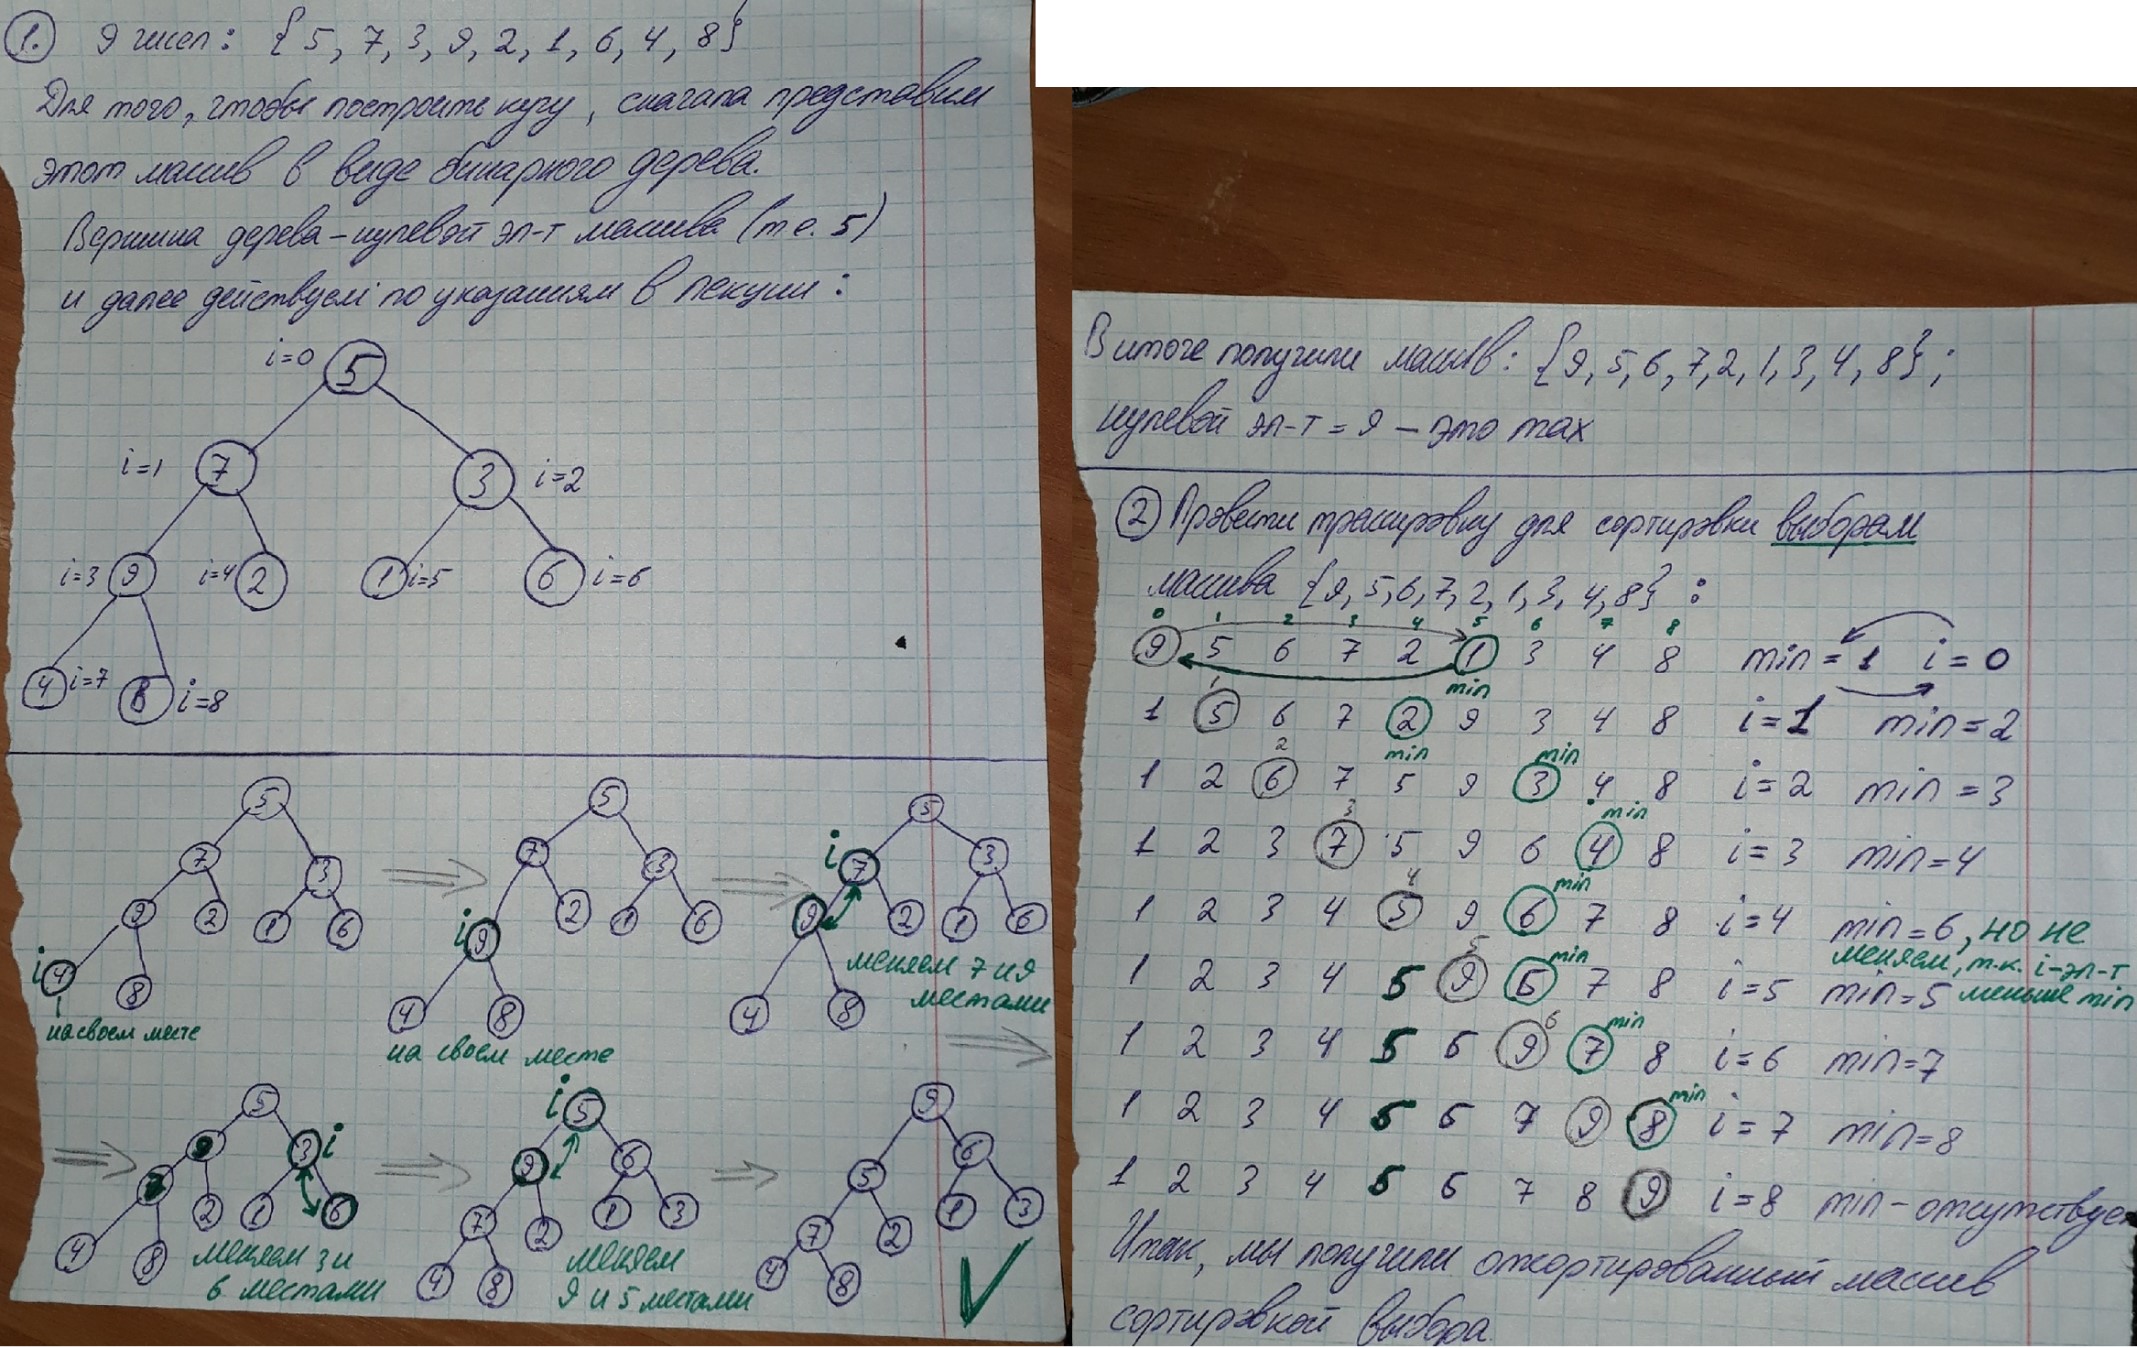 1. 9 чисел: {5, 7, 3, 9, 2, 1, 6, 4, 8}
Для того, чтобы построить кучу, сначала представим
этот массив в виде бинарного дерева.
Вершина дерева - нулевой эл-т массива (т.е. 5)
и далее действуем по указаниям в лекции:
i=0 5
i=1 7 3 i=2
i=3 9 i=4 2 1 i=5 6 i=6
4 i=7 8 i=8
5 5 5
7 3 7 3 i 7 3
9 2 1 6 i 9 2 1 6 9 2 1 6
i 4 8 4 8 4 8
меняем 7 и 9
местами
на своем месте
на своем месте
5 i 5 9
9 3 i 9 6 5 6
7 2 1 6 7 2 1 3 7 2 1 3
4 8 4 8 4 8
меняем 3 и
6 местами
меняем
9 и 5 местами
В итоге получили массив: {9, 5, 6, 7, 2, 1, 3, 4, 8};
нулевой эл-т = 9 - это max
2 Провести трассировку для сортировки выбором
массива {9, 5, 6, 7, 2, 1, 3, 4, 8}:
0 1 2 3 4 5 6 7 8
9 5 6 7 2 1 3 4 8 min = 1 i = 0
1 min
1 5 6 7 2 9 3 4 8 i = 1 min = 2
2 min min
1 2 6 7 5 9 3 4 8 i = 2 min = 3
3 min
1 2 3 7 5 9 6 4 8 i = 3 min = 4
4 min
1 2 3 4 5 9 6 7 8 i = 4 min = 6, но не
меняем, т.к. i-эл-т
меньше min
5 min
1 2 3 4 5 9 6 7 8 i = 5 min = 5
6 min
1 2 3 4 5 6 9 7 8 i = 6 min = 7
min
1 2 3 4 5 6 7 9 8 i = 7 min = 8
1 2 3 4 5 6 7 8 9 i = 8 min - отсутствует
Итак, мы получили отсортированный массив
сортировкой выбора.